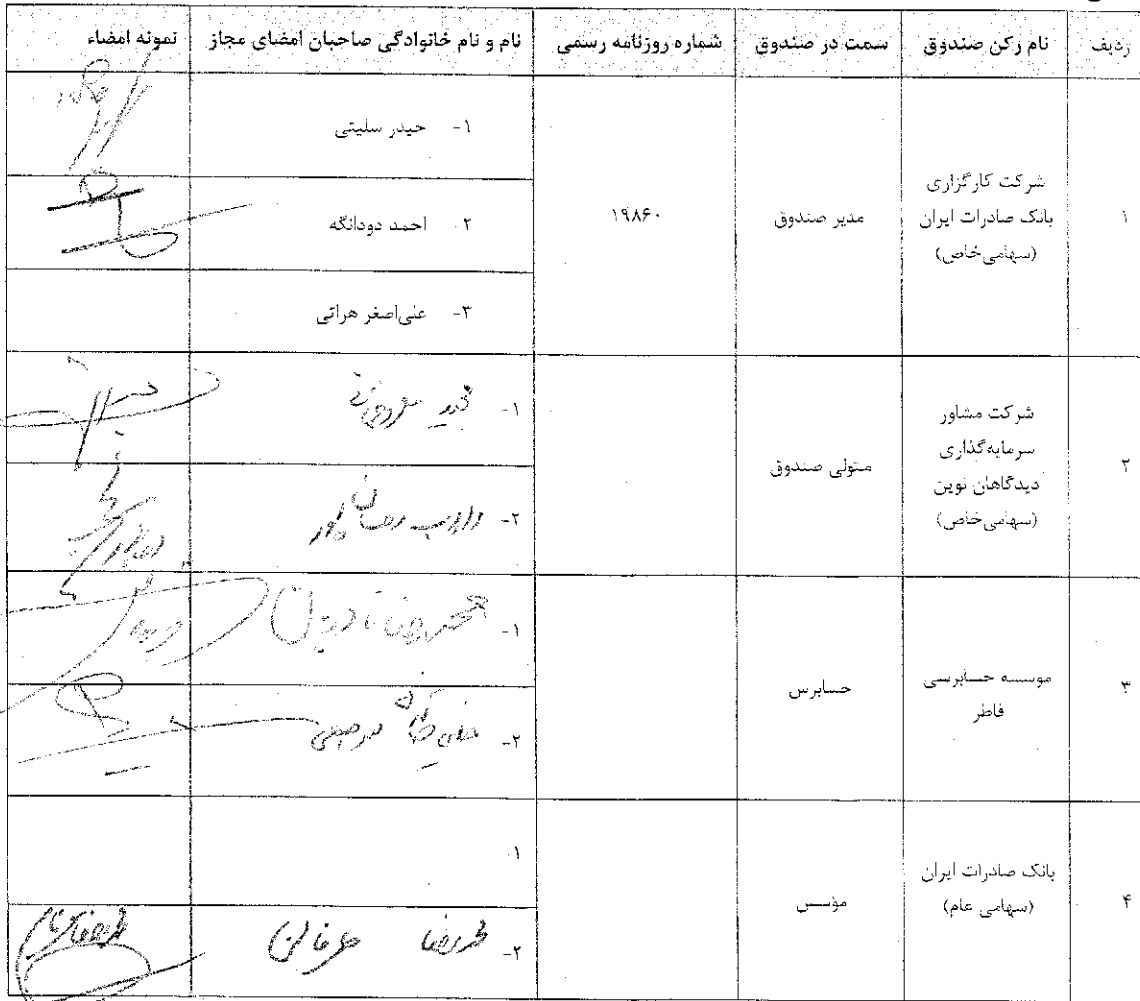 ردیف	نام رکن صندوق	سمت در صندوق	شماره روزنامه رسمی	نام و نام خانوادگی صاحبان امضای مجاز	نمونه امضاء
۱	شرکت کارگزاری
بانک صادرات ایران
(سهامی‌خاص)	مدیر صندوق	۱۹۸۶۰
۱- حیدر سلیتی
۲- احمد دودانگه
۳- علی‌اصغر هراتی
۲	شرکت مشاور
سرمایه‌گذاری
دیدگاهان نوین
(سهامی‌خاص)	متولی صندوق
۱- مجید
۲- داراب رمضان پور
۳	موسسه حسابرسی
فاطر	حسابرس
۱- محمدرضا نادریان
۲-
۴	بانک صادرات ایران
(سهامی عام)	مؤسس
۱
۲-